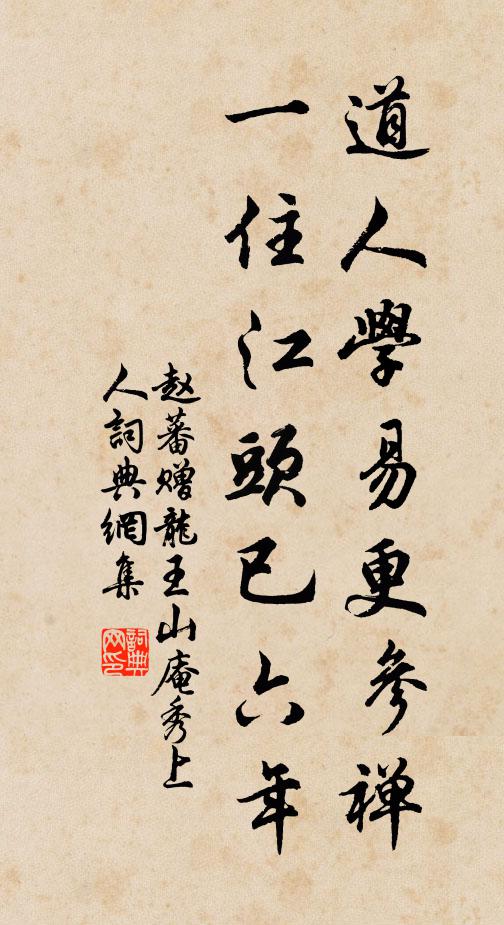 道人學易更參禅
一住江頭已六年
赵蕃赠龍王山庵秀上
人詞典網集
詞典网印